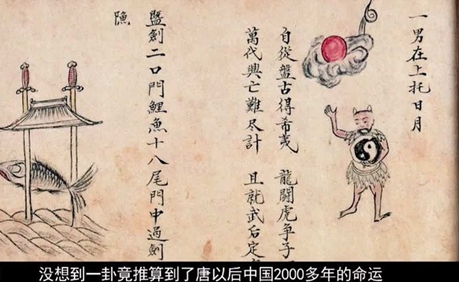 一男在上托日月
自從盤古得希夷 龍鬪虎爭
萬代興亡難尽計 且就武后定
豎劍二口門鯉魚十八尾門中過劍
隐
没想到一卦竟推算到了唐以后中国2000多年的命运